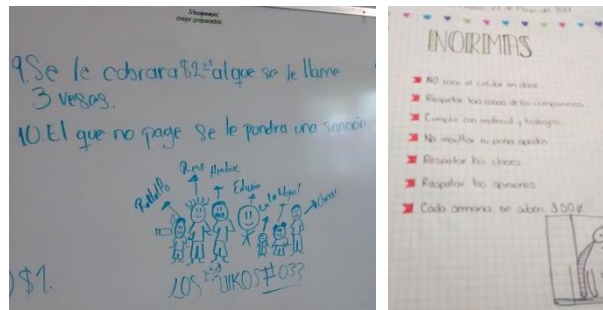 mejor preparados
9. Se le cobrara $2.00 al que se le llame
3 vesas.
10. El que no page se le pondra una sanción
Rodolfo
Rene
Edwin
La Mejor!
Omar
LOS
#033
$1.
NORMAS
No usar el celular en clase
Respetar las cosas de los compañeros
Cumplir con material y trabajos
No insultar ni poner apodos
Respetar las clases
Respetar las opiniones
Cada semana se aben $50¢